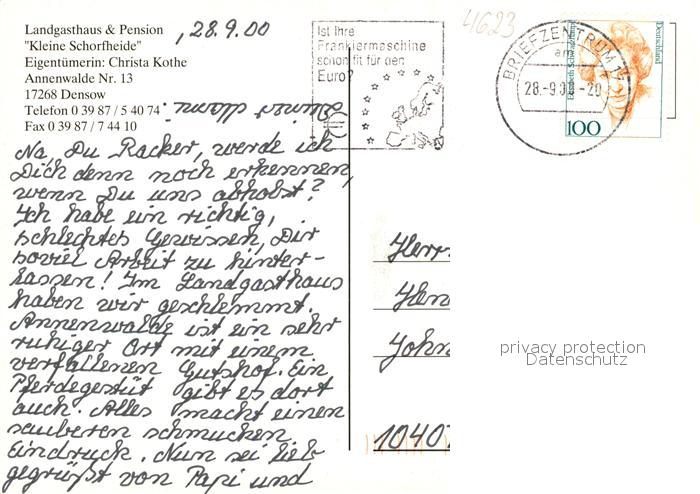 Landgasthaus & Pension
"Kleine Schorfheide"
Eigentümerin: Christa Kothe
Annenwalde Nr. 13
17268 Densow
Telefon 0 39 87 / 5 40 74
Fax 0 39 87 / 7 44 10
, 28.9.00
Na, Du Racker, werde ich
Dich denn noch erkennen,
wenn Du uns abholst?
Ich habe ein richtig,
schlechtes Gewissen, Dir
soviel Arbeit zu hinter-
lassen! Im Landgasthaus
haben wir geschlemmt.
Annenwalde ist ein sehr
ruhiger Ort mit einem
verfallenen Gutshof. Ein
Pferdegestüt gibt es dort
auch. Alles macht einen
sauberen schmucken
Eindruck. Nun sei lieb
gegrüßt von Papi und
Deiner Mami.
Ist Ihre
Frankiermaschine
schon fit für den
Euro?
4623
BRIEFZENTRUM
am
28.-9.00-20
Deutschland
100
Herr
Hen
John
10407
privacy protection
Datenschutz